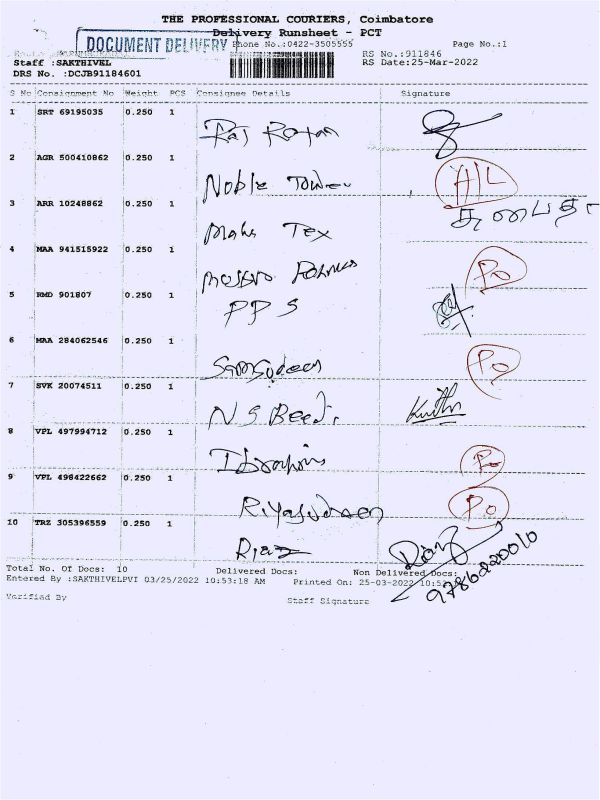 THE PROFESSIONAL COURIERS, Coimbatore
Delivery Runsheet - PCT
DOCUMENT DELIVERY
Phone No.:0422-3505555
Page No.:1
RS No.:911846
Staff :SAKTHIVEL
RS Date:25-Mar-2022
DRS No. :DCJB91184601
S No Consignment No Weight PCS Consignee Details Signature
1 SRT 69195035 0.250 1
2 AGR 500410862 0.250 1 Noble Tower
3 ARR 10248862 0.250 1 Tex
4 MAA 941515922 0.250 1 Po
5 RMD 901807 0.250 1 PPS
6 MAA 284062546 0.250 1 Samsudeen Po
7 SVK 20074511 0.250 1 NS
8 VPL 497994712 0.250 1 Ibrahim Po
9 VPL 498422662 0.250 1 Riyasudeen Po
10 TRZ 305396559 0.250 1 Riaz
9786220010
Total No. Of Docs: 10 Delivered Docs: Non Delivered Docs:
Entered By :SAKTHIVELPVI 03/25/2022 10:53:18 AM Printed On: 25-03-2022
Verified By Staff Signature